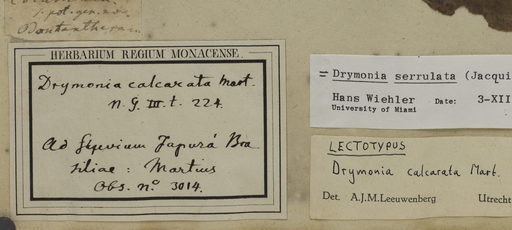 1. pol. gen. nov.
Dontantheram
HERBARIUM REGIUM MONACENSE.
Drymonia calcarata Mart.
n. g. III. t. 224.
Ad fluvium Japurá Bra
siliae: Martius
Obs. nº 3014.
= Drymonia serrulata (Jacqui
Hans Wiehler Date: 3-XII
University of Miami
LECTOTYPUS
Drymonia calcarata Mart.
Det. A.J.M.Leeuwenberg Utrecht